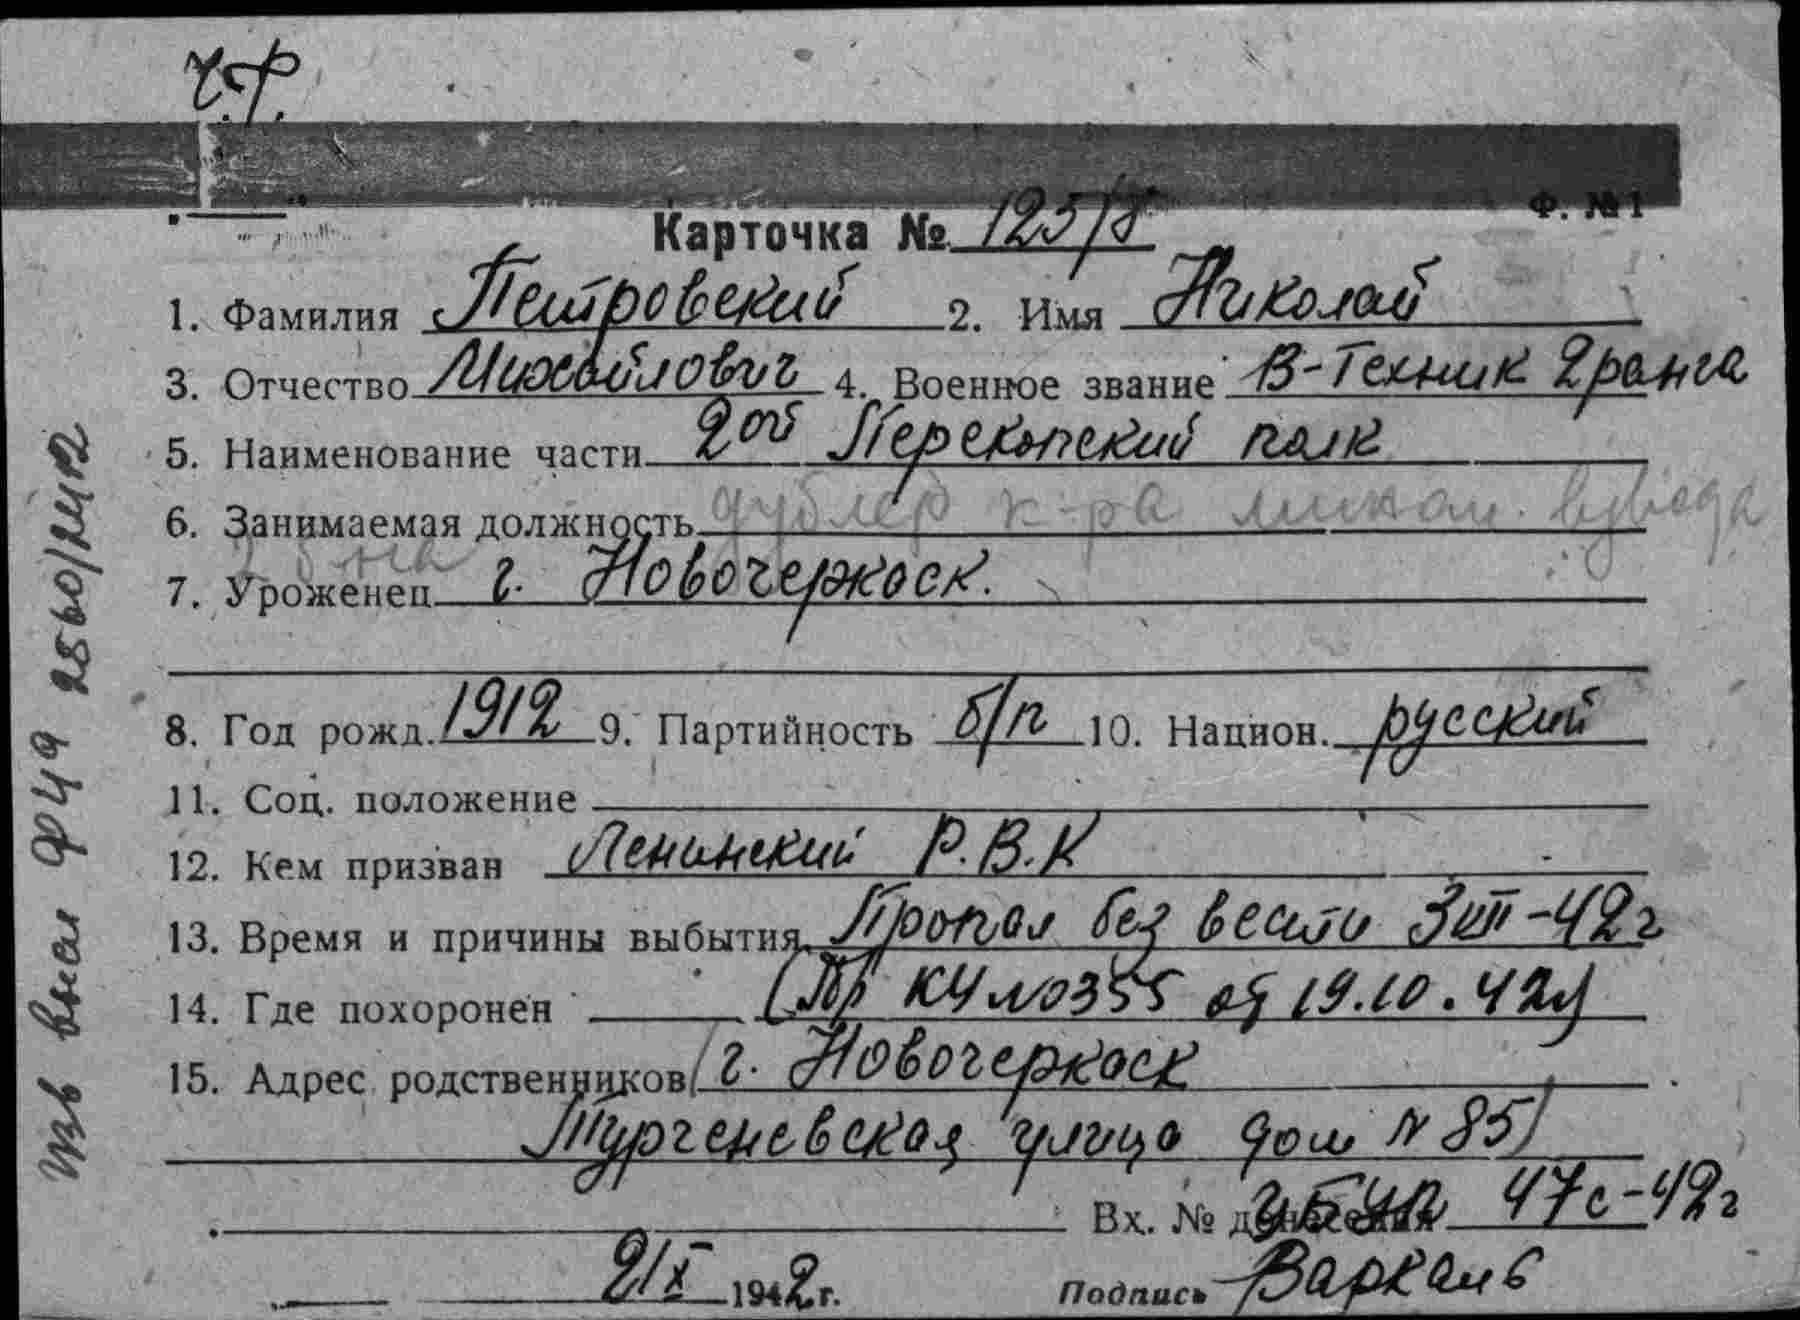 ч.ф.
Ф. №1
Карточка № 125/8
1. Фамилия Петровский 2. Имя Николай
3. Отчество Михайлович 4. Военное звание В-Техник 2 ранга
5. Наименование части 2ой Перекопский полк
6. Занимаемая должность дублер к-ра мином. взвода
7. Уроженец г. Новочеркаск.
8. Год рожд. 1912 9. Партийность б/п 10. Национ. русский
11. Соц. положение
12. Кем призван Ленинский Р.В.К
13. Время и причины выбытия Пропал без вести 3 VII-42 г
14. Где похоронен (Пр КЧ №0355 от 19.10.42г)
15. Адрес родственников (г. Новочеркаск
Тургеневская улица дом N 85)
Вх. № донесения 47с-42г
2/X 1942 г. Подпись